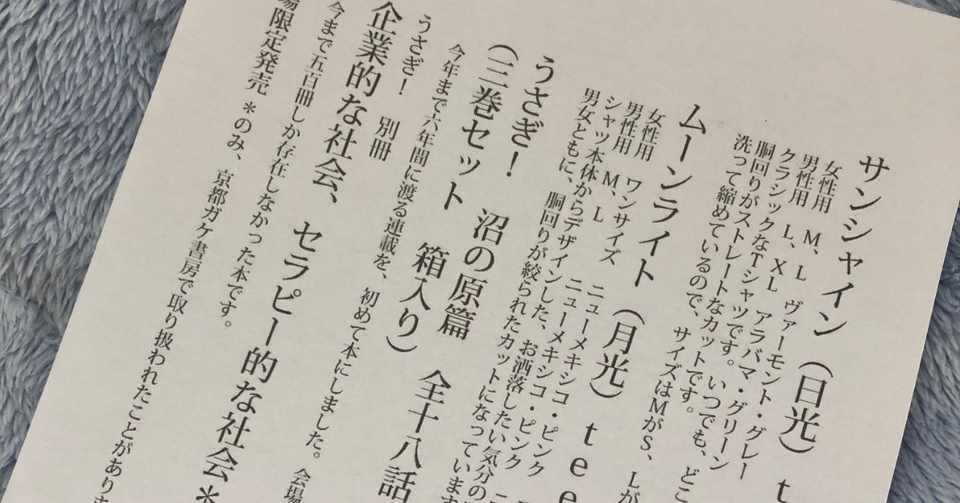 サンシャイン（日光）t
女性用 M、L ヴァーモント・グレー
男性用 L、XL アラバマ・グリーン
クラシックなTシャツです。いつでも、どこ
胴回りがストレートなカットです。
洗って縮めているので、サイズはMがS、Lが
ムーンライト（月光）tee
女性用 ワンサイズ ニューメキシコ・ピンク
男性用 M、L ニューメキシコ・ピンク
シャツ本体からデザインした、お洒落したい気分の
男女ともに、胴回りが絞られたカットになっています
うさぎ！ 沼の原篇 全十八話
（三巻セット 箱入り）
今年まで六年間に渡る連載を、初めて本にしました。会場
うさぎ！ 別冊
企業的な社会、セラピー的な社会＊
今まで五百冊しか存在しなかった本です。
場限定発売 ＊のみ、京都ガケ書房で取り扱われたことがありま